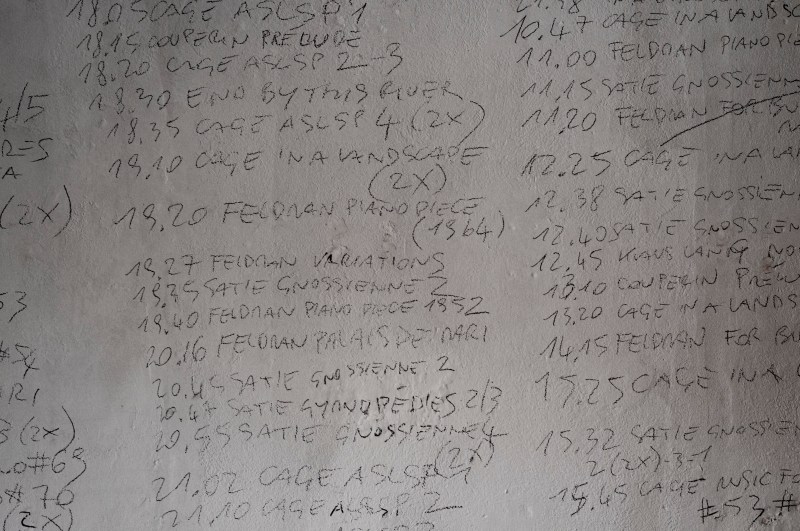 4/5
RES
(2X)
53
#54
ORI
3 (2X)
#69
#70
(2X)
18.05 CAGE ASLSP 1
18.15 COUPERIN PRELUDE
18.20 CAGE ASLSP 2-3
18.30 ENO BY THIS RIVER
18.35 CAGE ASLSP 4 (2X)
19.10 CAGE IN A LANDSCAPE
(2X)
19.20 FELDMAN PIANO PIECE
(1964)
19.27 FELDMAN VARIATIONS
19.35 SATIE GNOSSIENNE 2
19.40 FELDMAN PIANO PIECE 1952
20.16 FELDMAN PALAIS DE MARI
20.45 SATIE GNOSSIENNE 2
20.47 SATIE GYMNOPÉDIES 2/3
20.55 SATIE GNOSSIENNE 4
(2X)
21.02 CAGE ASLSP 1
21.10 CAGE ASLSP 2
10.47 CAGE IN A LANDSC
11.00 FELDMAN PIANO PIE
11.15 SATIE GNOSSIENN
11.20 FELDMAN FOR BU
12.25 CAGE IN A LA
12.38 SATIE GNOSSIEN
12.40 SATIE GNOSSIEN
12.45 KLAUS LANG NO
13.10 COUPERIN PREL
13.20 CAGE IN A LANDS
14.15 FELDMAN FOR BU
15.25 CAGE IN A
15.32 SATIE GNOSSIEN
2(2X)-3-1
15.45 CAGE MUSIC FO
#53 #